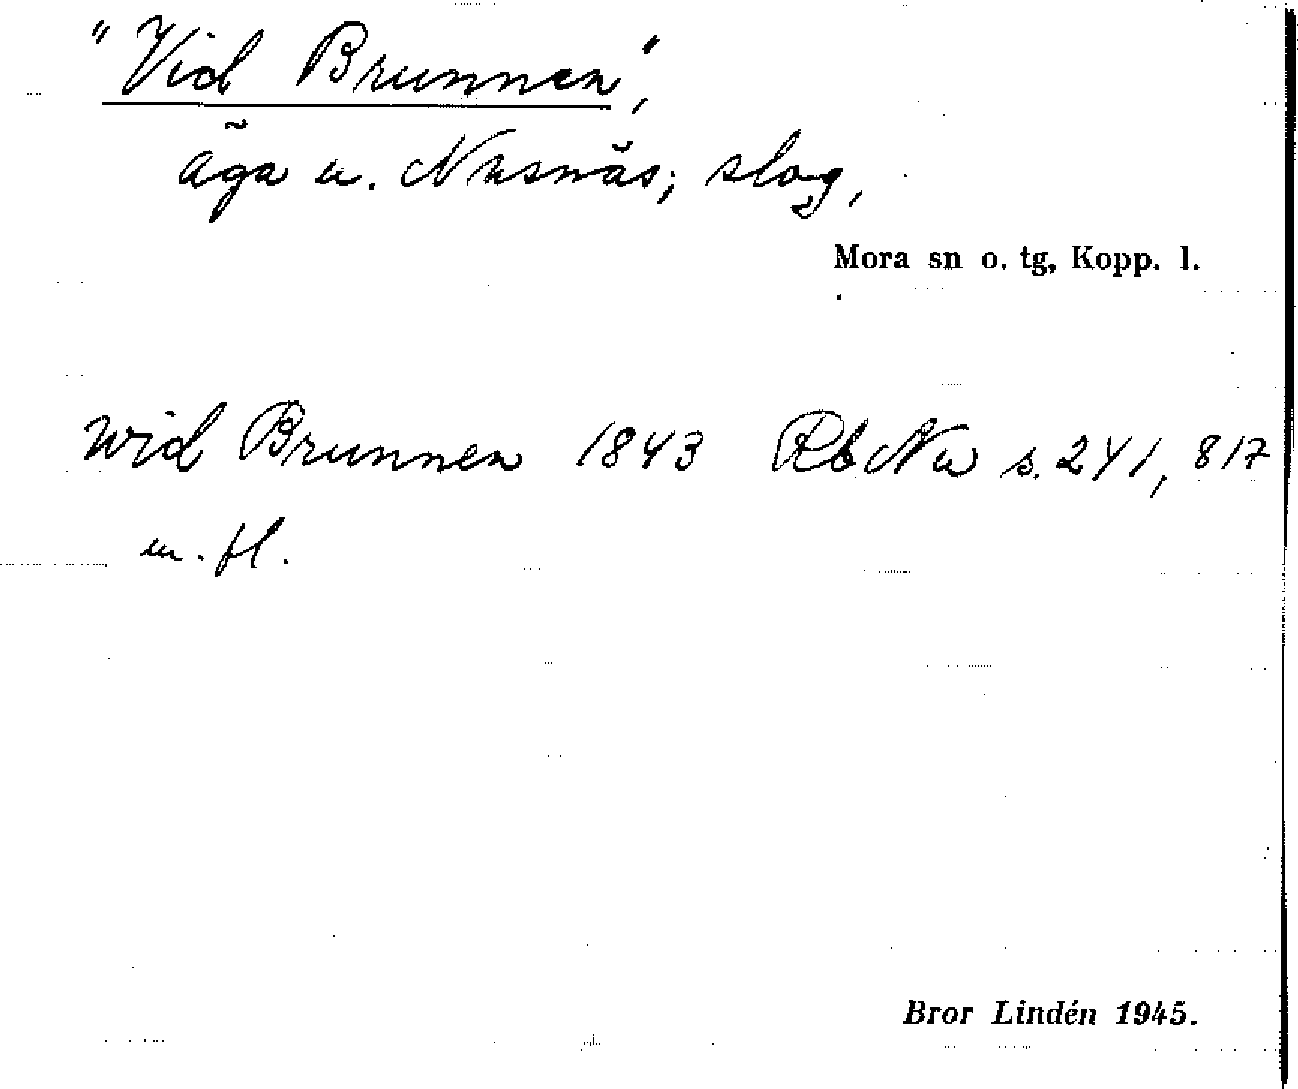 "Vid Brunnen",
äga u. Nusnäs; slog,
Mora sn o. tg, Kopp. l.
wid Brunnen 1843 Rb Nu s. 241, 817
m. fl.
Bror Lindén 1945.